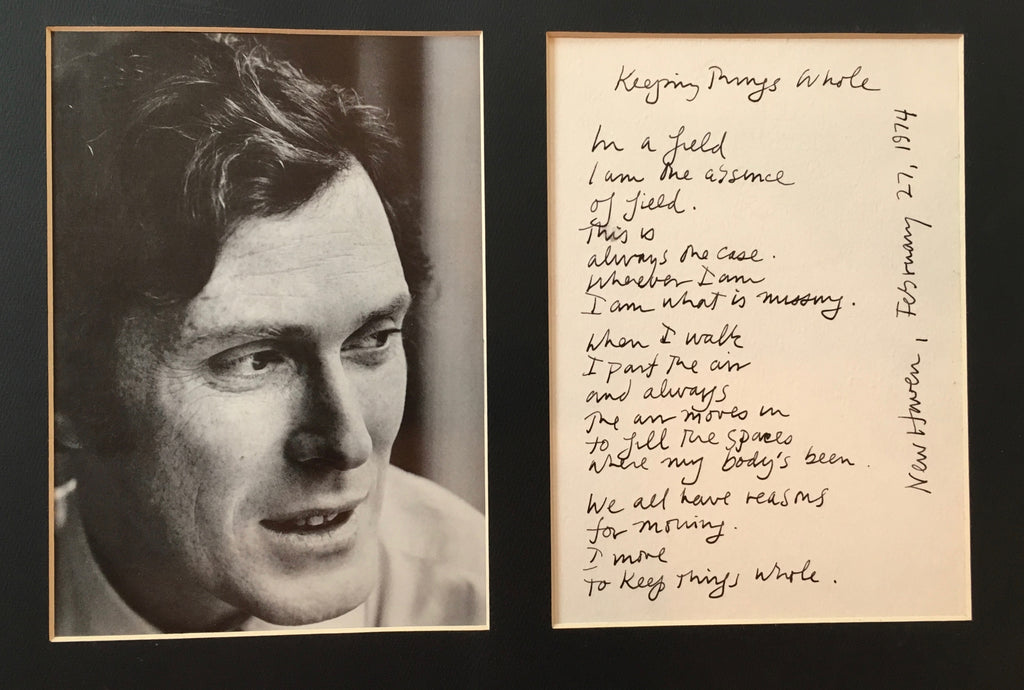 Keeping Things Whole
In a field
I am the absence
of field.
This is
always the case.
Wherever I am
I am what is missing.
When I walk
I part the air
and always
the air moves in
to fill the spaces
where my body's been.
We all have reasons
for moving.
I move
to keep things whole.
New Haven, February 27, 1974